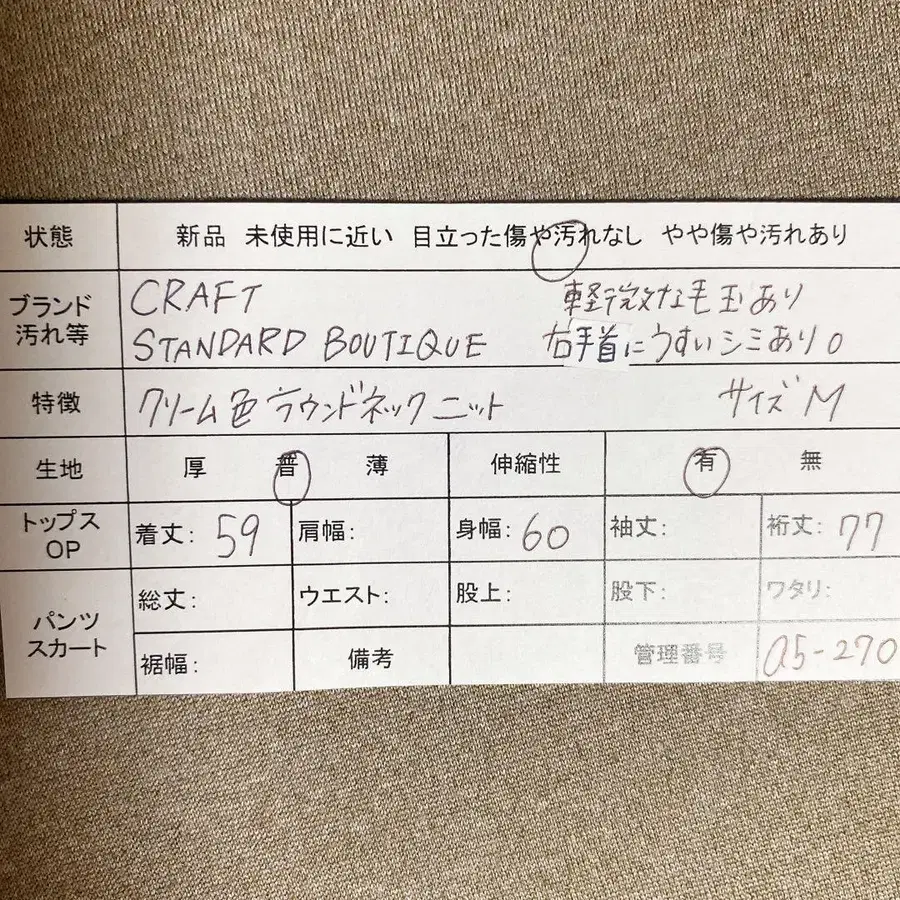 状態 新品 未使用に近い 目立った傷や汚れなし やや傷や汚れあり
ブランド 汚れ等 CRAFT 軽微な毛玉あり
STANDARD BOUTIQUE 右手首にうすいシミあり。
特徴 クリーム色ラウンドネックニット サイズM
生地 厚 普 薄 伸縮性 有 無
トップス OP 着丈: 59 肩幅: 身幅: 60 袖丈: 裄丈: 77
パンツ スカート 総丈: ウエスト: 股上: 股下: ワタリ:
裾幅: 備考 管理番号 a5-270